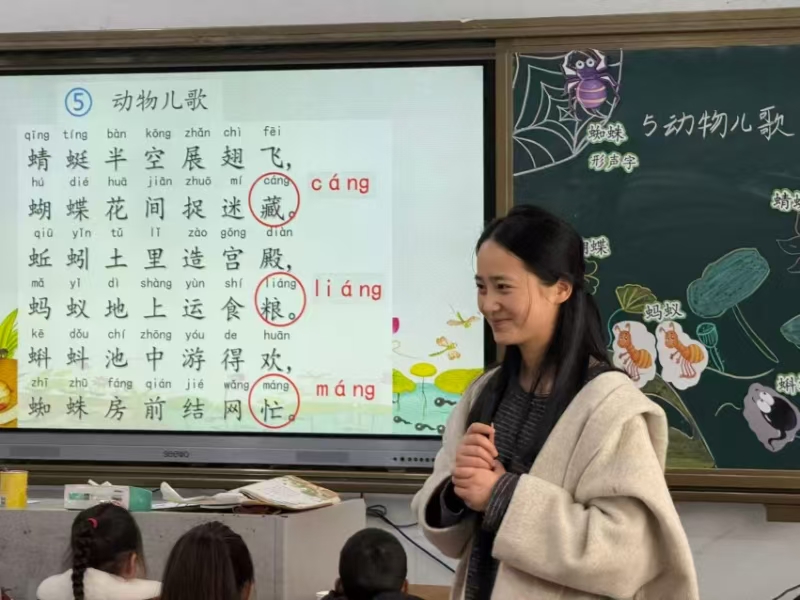 ⑤ 动物儿歌
qīng tíng bàn kōng zhǎn chì fēi
蜻蜓半空展翅飞，
hú dié huā jiān zhuō mí cáng
蝴蝶花间捉迷藏。
cáng
qiū yǐn tǔ lǐ zào gōng diàn
蚯蚓土里造宫殿，
mǎ yǐ dì shàng yùn shí liáng
蚂蚁地上运食粮。
liáng
kē dǒu chí zhōng yóu de huān
蝌蚪池中游得欢，
zhī zhū fáng qián jié wǎng máng
蜘蛛房前结网忙。
máng
seewo
蜘蛛
形声字
5动物儿歌
蜻
蝴蝶
蚂蚁
蝌